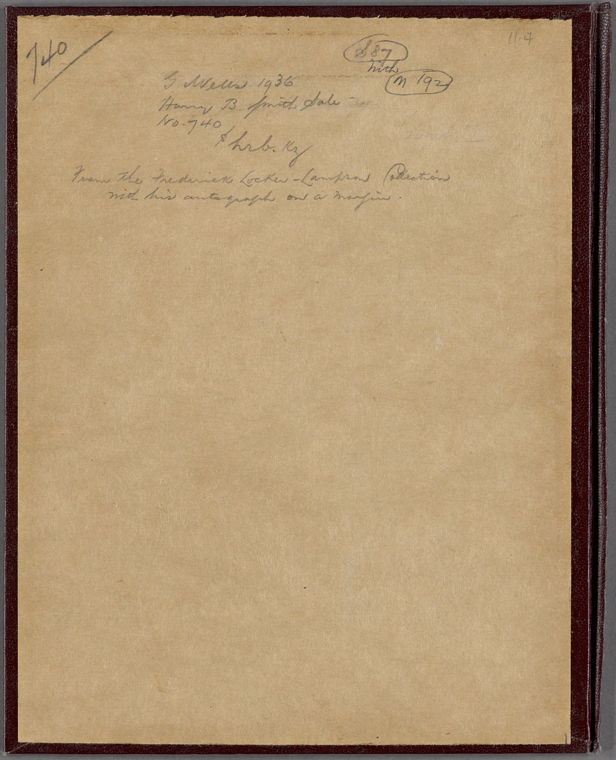 740
S 87
with
M 192
11.4
G. Wells 1936
Harry B. Smith Sale
No. 740
From the Frederick Locker-Lampson Collection
with his autograph on a margin.